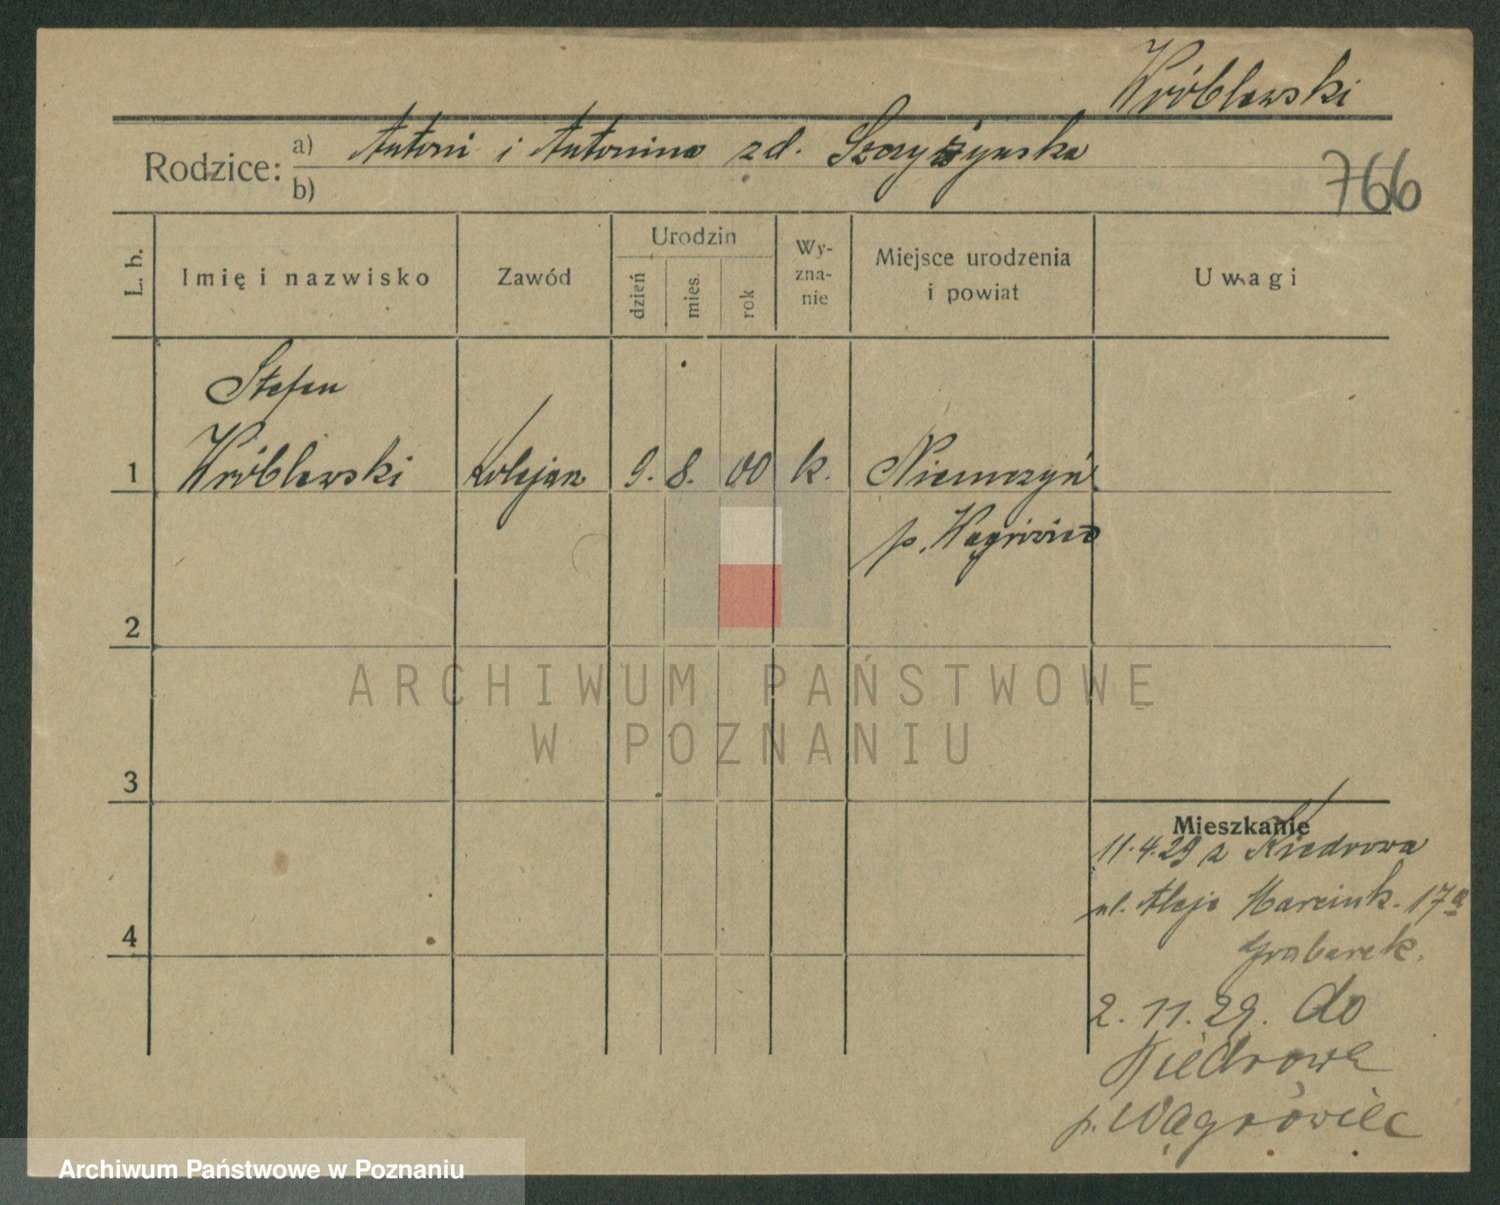 Wróblewski
Rodzice: a) Antoni i Antonina zd.
b)
766
L. b.
Imię i nazwisko
Zawód
Urodzin
dzień
mies.
rok
Wy-
zna-
nie
Miejsce urodzenia
i powiat
Uwagi
Stefan
1 Wróblewski kolejarz 9. 8. 00 k. Niemczyn
p. Wągrówiec
2
ARCHIWUM PAŃSTWOWE
W POZNANIU
3
Mieszkanie
11.4.29 z Kiedrowa
ul. Aleje Marcink. 17a
Grabarek.
4
2. 11. 29. do
Kiedrowa
p. Wągrówiec
Archiwum Państwowe w Poznaniu